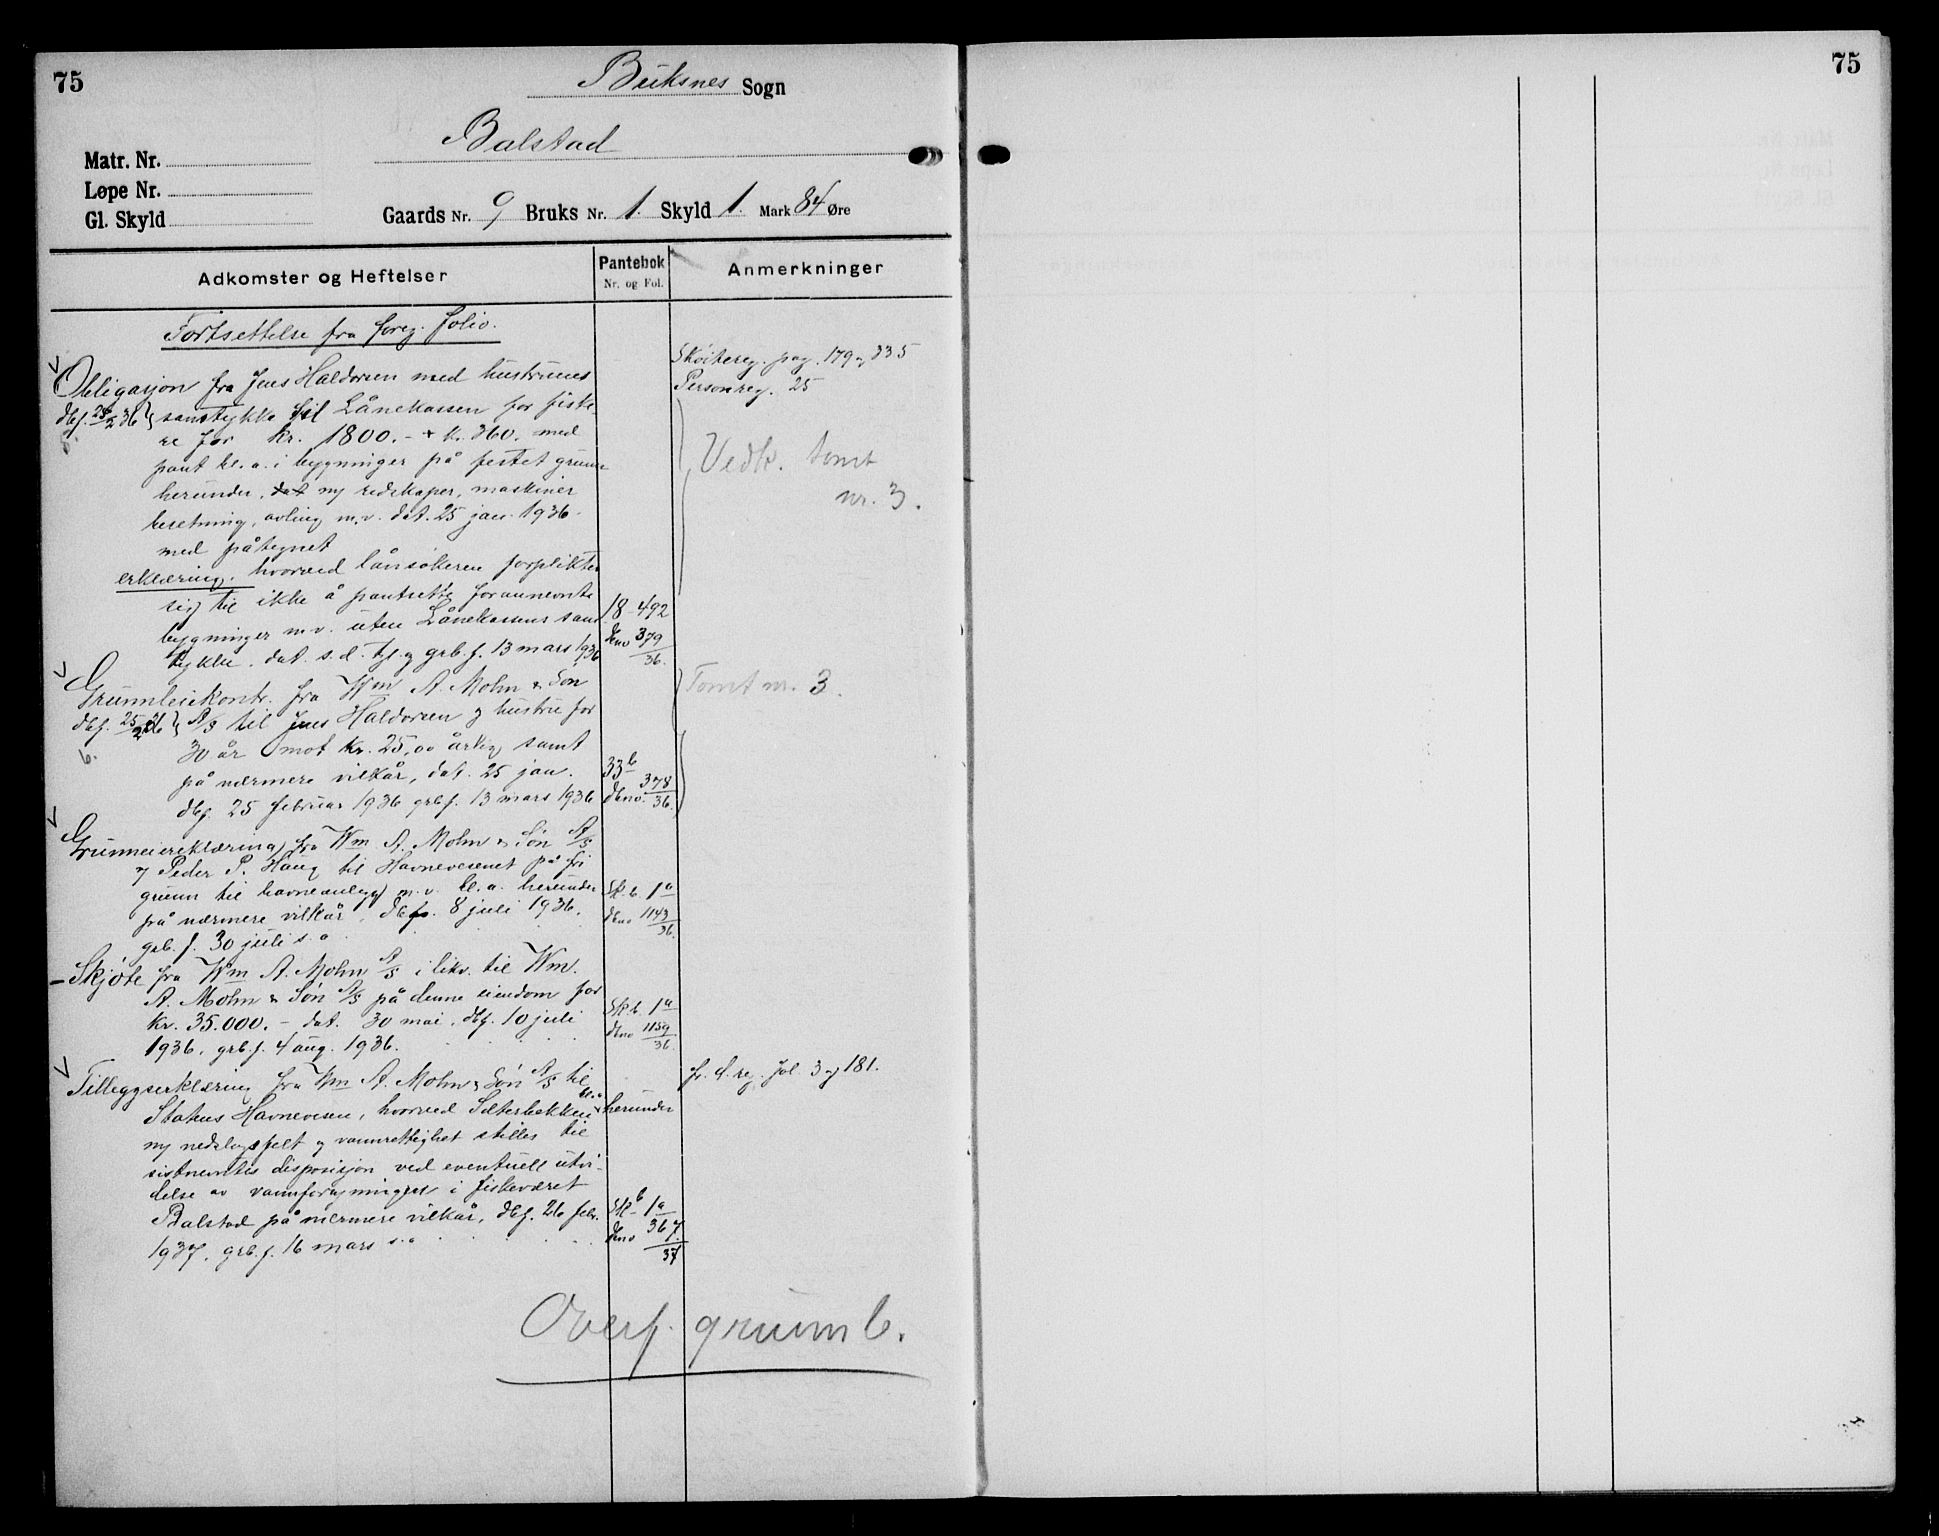 75
Buksnes Sogn
Balstad
Matr. Nr.
Løpe Nr.
Gl. Skyld
Gaards Nr. 9 Bruks Nr. 1. Skyld 1. Mark 84 Øre
Adkomster og Heftelser
Pantebok
Nr. og Fol.
Anmerkninger
Fortsettelse fra foreg. folio.
Skøitereg. pag. 179 og 335
Personreg. 25
Obligasjon fra Jens Haldorsen med hustrues
dbf. 25/2 36 } samtykke til Lånekassen for fiske-
re for kr. 1800.- + kr. 360. med
pant bl. a. i bygninger på festet grunn
herunder, dat ny redskaper, maskiner
besetning, avling m.v. dat. 25 jan. 1936.
med påtegnet
erklæring, hvorved lånsøkeren forplikter
sig til ikke å pantsette forannevnte
bygninger m.v. uten Lånekassens sam-
tykke. dat. s.d. tgl. og grb.f. 13 mars 1936
18-492
dbno 379/36.
Vedk. tomt
nr. 3.
Grunnleiekontr. fra Wm A. Mohn & Søn
dbf. 25/2 36 } A/S til Jens Haldorsen og hustru for
6.
30 år mot kr. 25,00 årlig samt
på nærmere vilkår, dat. 25 jan.
dbf. 25 februar 1936 grb.f. 13 mars 1936
33b
dbno. 378/36.
Tomt nr. 3.
Grunneiererklæring fra Wm A. Mohn & Søn A/S
og Peder P. Haug til Havnevesenet på fri
grunn til havneanlegg m.v. bl.a. herunder
på nærmere vilkår. Dbf. 8 juli 1936.
grb.f. 30 juli s.a.
Sk.b. 1a
dbno 1143/36.
- Skjøte fra Wm A. Mohn A/S i likv. til Wm.
A. Mohn & Søn A/S på denne eiendom for
kr. 35.000.- dat. 30 mai. dbf. 10 juli
1936, grb.f. 4 aug. 1936.
Sk.b. 1a
dbno 1159/36.
Tilleggserklæring fra Wm A. Mohn & Søn A/S til
Statens Havnevesen, hvorved Sæterbekken bl.a. herunder
ny nedslagsfelt og vannrettighet stilles til
sistnevntes disposisjon ved eventuell utvi-
delse av vannforsyningen i fiskeværet
Balstad på nærmere vilkår, dbf. 26 febr.
1937, grb.f. 16 mars s.a.
Sk.b 1a
dbno 367/37
fr. d. reg. fol. 3 og 181.
Overf. grunnb.
75